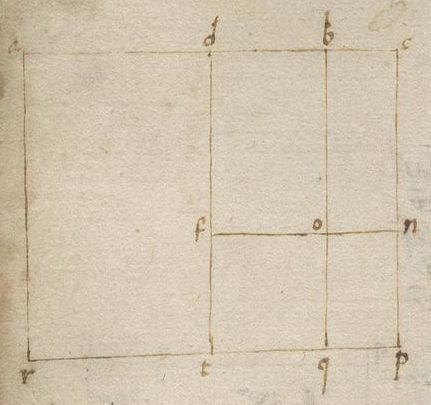 a d b c
f o n
r t q p